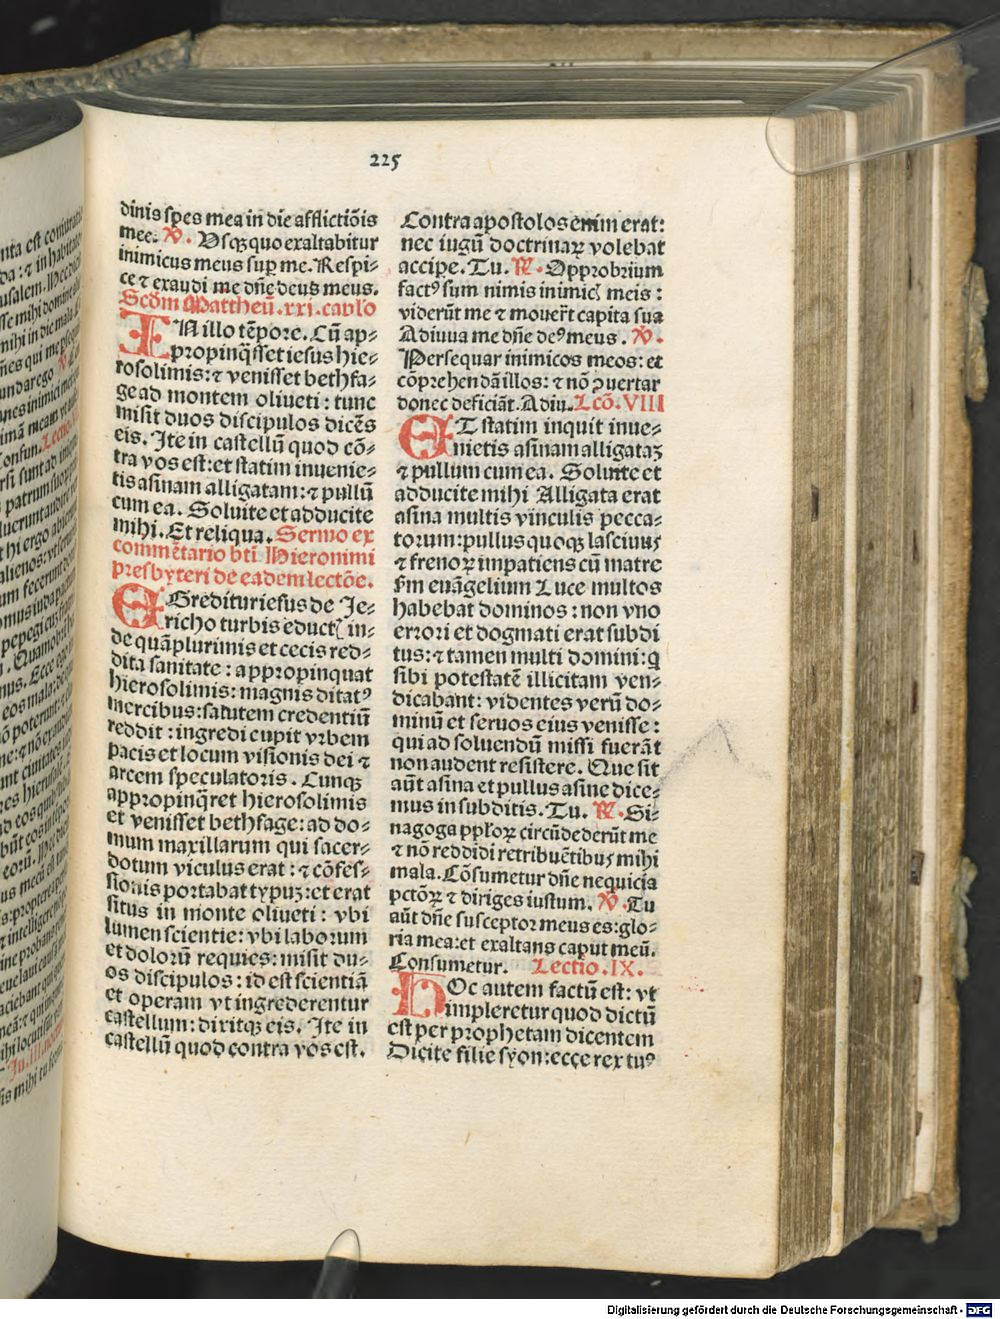 225
dinis spes mea in die afflictiõis
mee. ℣. Vsqꝫquo exaltabitur
inimicus meus suꝑ me. Respi⸗
ce ⁊ exaudi me dñe deus meus.
Scďm Mattheũ.xxi.caplo
IN illo tẽpore. Cũ ap⸗
propinq̃sset iesus hie⸗
rosolimis: ⁊ venisset bethfa⸗
ge ad montem oliueti: tunc
misit duos discipulos dicẽs
eis. Ite in castellũ quod cõ⸗
tra vos est: et statim inuenie⸗
tis asinam alligatam: ⁊ pullũ
cum ea. Soluite et adducite
mihi. Et reliqua. Sermo ex
commẽtario bti Hieronimi
presbyteri de eadem lectõe.
EGreditur iesus de Je⸗
richo turbis educt in⸗
de quãplurimis et cecis red⸗
dita sanitate: appropinquat
hierosolimis: magnis ditatꝰ
mercibus: salutem credentiũ
reddit: ingredi cupit vrbem
pacis et locum visionis dei ⁊
arcem speculatoris. Cunqꝫ
appropinq̃ret hierosolimis
et venisset bethfage: ad do⸗
mum maxillarum qui sacer⸗
dotum viculus erat: ⁊ cõfes⸗
sionis portabat typuꝫ: et erat
situs in monte oliueti: vbi
lumen scientie: vbi laborum
et dolorũ requies: misit du⸗
os discipulos: id est scientiã
et operam vt ingrederentur
castellum: dixitqꝫ eis. Ite in
castellũ quod contra vos est.
Contra apostolos enim erat:
nec iugũ doctrinaꝝ volebat
accipe. Tu. ℟. Opprobrium
factꝰ sum nimis inimic meis:
viderũt me ⁊ mouer̃t capita sua
Adiuua me dñe deꝰ meus. ℣.
Persequar inimicos meos: et
cõprehendã illos: ⁊ nõ ꝯuertar
donec deficiãt. Adiu. Lcõ. VIII
ET statim inquit inue⸗
nietis asinam alligataꝫ
⁊ pullum cum ea. Soluite et
adducite mihi Alligata erat
asina multis vinculis pecca⸗
torum: pullus quoqꝫ lasciuus
⁊ frenoꝝ impatiens cũ matre
ẜm euãgelium Luce multos
habebat dominos: non vno
errori et dogmati erat subdi
tus: ⁊ tamen multi domini: q
sibi potestatẽ illicitam ven⸗
dicabant: videntes verũ do⸗
minũ et seruos eius venisse:
qui ad soluendũ missi fuerãt
non audent resistere. Que sit
aũt asina et pullus asine dice⸗
mus in subditis. Tu. ℟. Si⸗
nagoga ppłoꝝ circũdederũt me
⁊ nõ reddidi retribuẽtibus mihi
mala. Cõsumetur dñe nequicia
pctõꝝ ⁊ diriges iustum. ℣. Tu
aũt dñe susceptor meus es: glo⸗
ria mea: et exaltans caput meũ.
Consumetur. Lectio.IX.
HOc autem factũ est: vt
impleretur quod dictũ
est per prophetam dicentem
Dicite filie syon: ecce rex tuꝰ
Digitalisierung gefördert durch die Deutsche Forschungsgemeinschaft - DFG